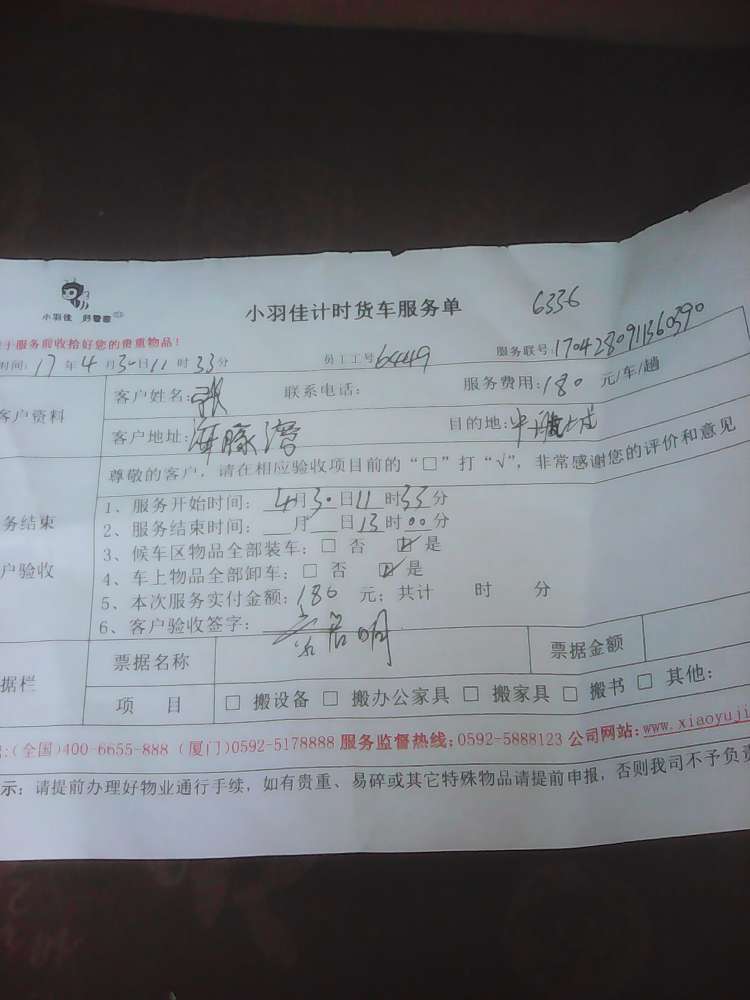 小羽佳 好管家
小羽佳计时货车服务单
6336
于服务前收拾好您的贵重物品！
时间：17年4月30日11时33分
员工工号64449
服务联号：1704280911360390
客户资料
客户姓名：张
联系电话：
服务费用：180元/车/趟
客户地址：海豚湾
目的地：
尊敬的客户，请在相应验收项目前的“□”打“√”，非常感谢您的评价和意见
务结束
户验收
1、服务开始时间：4月30日11时33分
2、服务结束时间：月日13时00分
3、候车区物品全部装车：□ 否 ☑ 是
4、车上物品全部卸车：□ 否 ☑ 是
5、本次服务实付金额：180元；共计 时 分
6、客户验收签字：
据栏
票据名称
票据金额
项 目
□ 搬设备 □ 搬办公家具 □ 搬家具 □ 搬书 □ 其他：
：(全国)400-6655-888 (厦门)0592-5178888 服务监督热线：0592-5888123 公司网站：www.xiaoyuji
示：请提前办理好物业通行手续，如有贵重、易碎或其它特殊物品请提前申报，否则我司不予负责